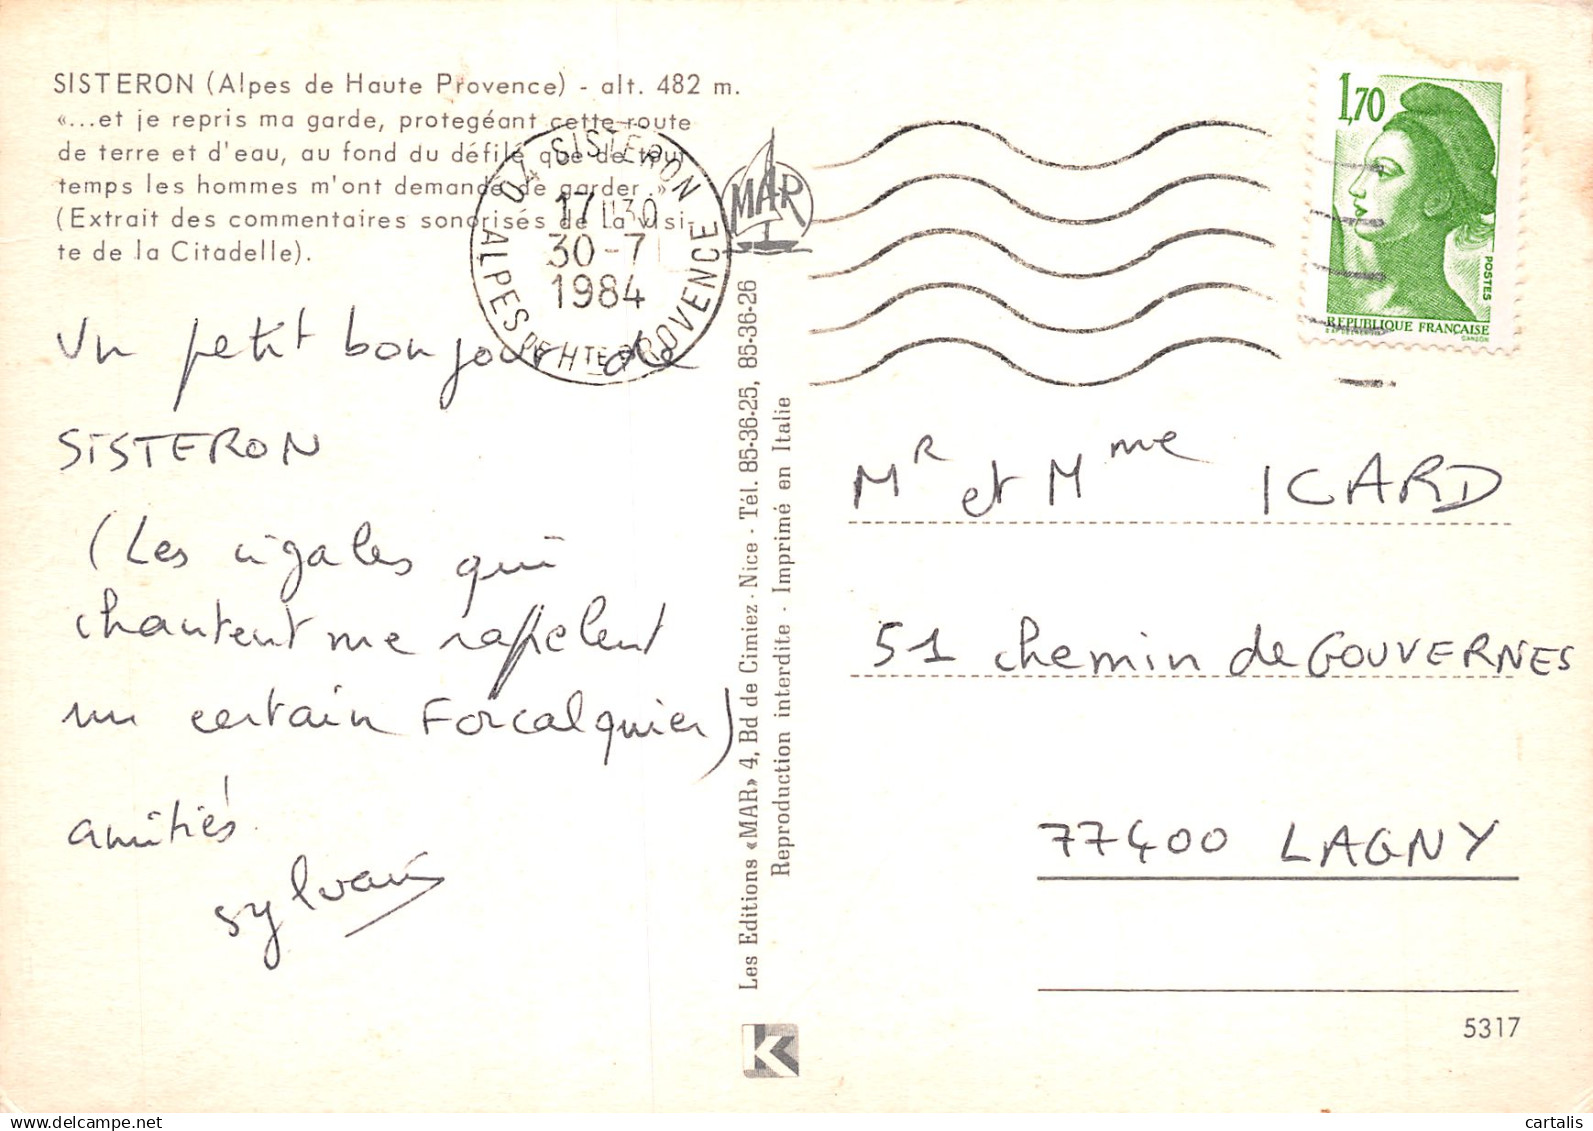 SISTERON (Alpes de Haute Provence) - alt. 482 m.
«...et je repris ma garde, protegéant cette route
de terre et d'eau, au fond du défilé que de tout
temps les hommes m'ont demandé de garder.»
(Extrait des commentaires sonorisés de la visi-
te de la Citadelle).
04 SISTERON
17H30
30-7
1984
ALPES DE HTE PROVENCE
MAR
1,70
POSTES
REPUBLIQUE FRANCAISE
GANDON
Un petit bonjour de
SISTERON
(Les cigales qui
chantent me rapelent
un certain Forcalquier)
amitiés.
Sylvain
Les Editions «MAR» 4, Bd de Cimiez - Nice - Tél. 85-36-25, 85-36-26
Reproduction interdite - Imprimé en Italie
K
MR et Mme ICARD
51 chemin de GOUVERNES
77400 LAGNY
5317
cartalis